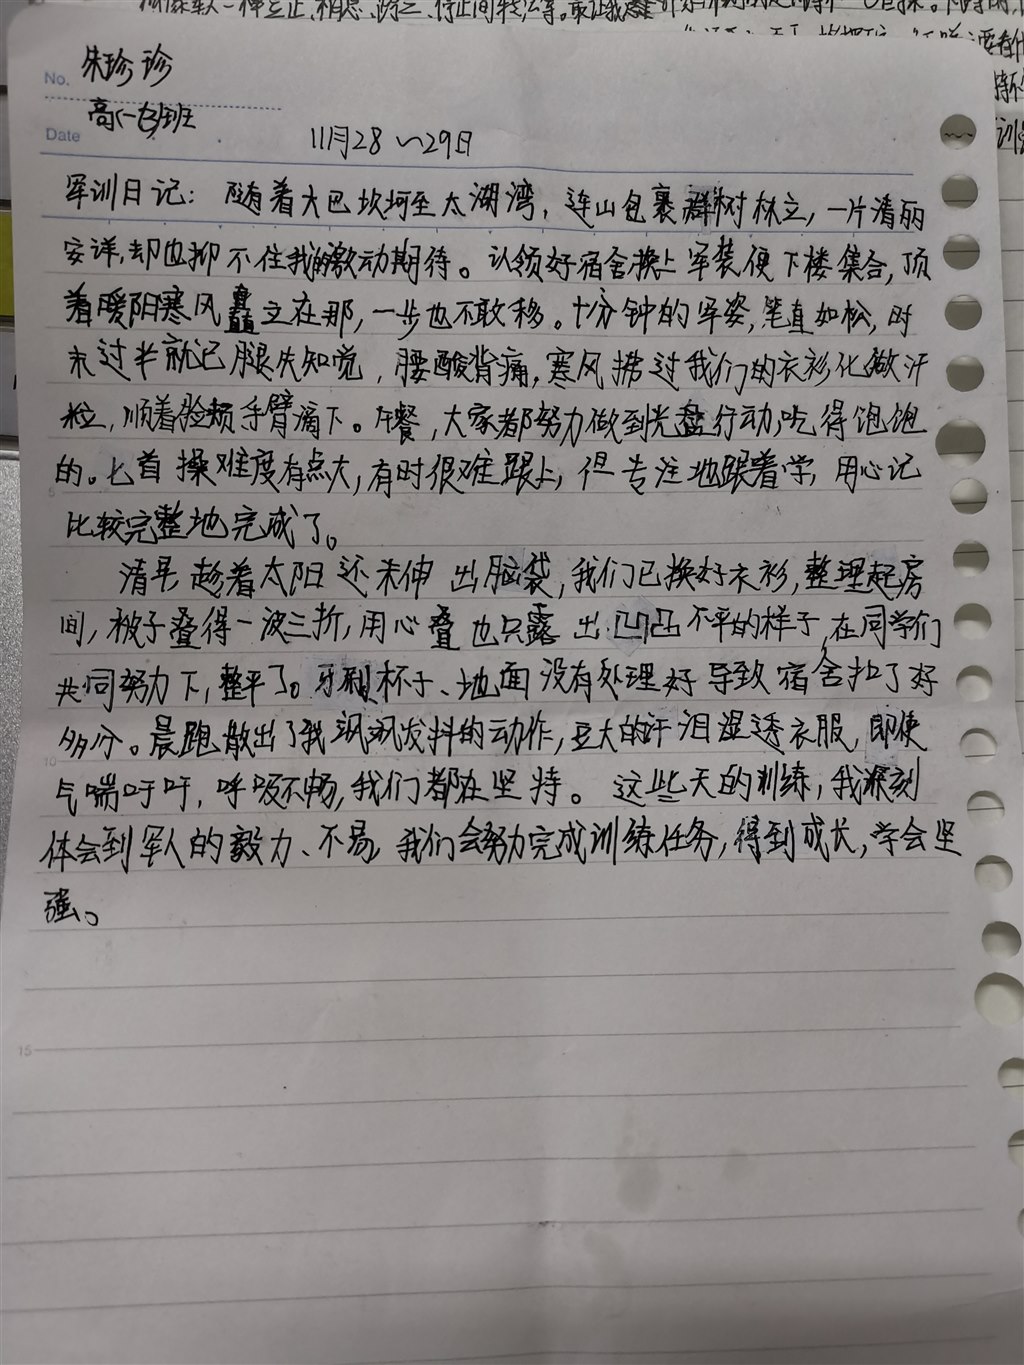 No. 朱珍珍
高一(3)班
Date 11月28~29日
军训日记：随着大巴坎坷至太湖湾，连山包裹群树林立，一片清丽
安详，却也抑不住我的激动期待。认领好宿舍换上军装便下楼集合，顶
着暖阳寒风矗立在那，一步也不敢移。十分钟的军姿，笔直如松，时
未过半就已腿失知觉，腰酸背痛，寒风拂过我们的衣衫化做汗
粒，顺着脸颊手臂滴下。午餐，大家都努力做到光盘行动，吃得饱饱
的。匕首操难度有点大，有时很难跟上，但专注地跟着学，用心记
比较完整地完成了。
清早趁着太阳还未伸出脑袋，我们已换好衣衫，整理起房
间，被子叠得一波三折，用心叠也只露出凹凸不平的样子，在同学们
共同努力下，整平了。牙刷杯子、地面没有处理好导致宿舍扣了好
多分。晨跑散出了我飒飒发抖的动作，豆大的汗泪湿透衣服，即使
气喘吁吁，呼吸不畅，我们都在坚持。这些天的训练，我深刻
体会到军人的毅力、不易，我们会努力完成训练任务，得到成长，学会坚
强。
5
10
15